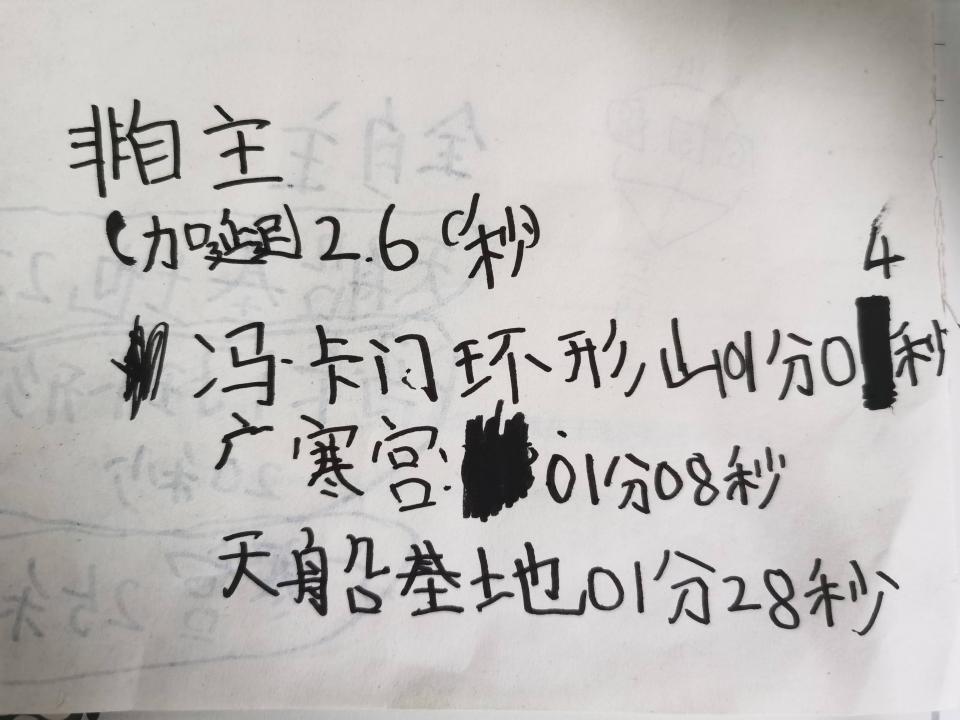 非自主
(加延迟)2.6(秒)
冯·卡门环形山01分04秒
广寒宫:01分08秒
天船基地01分28秒